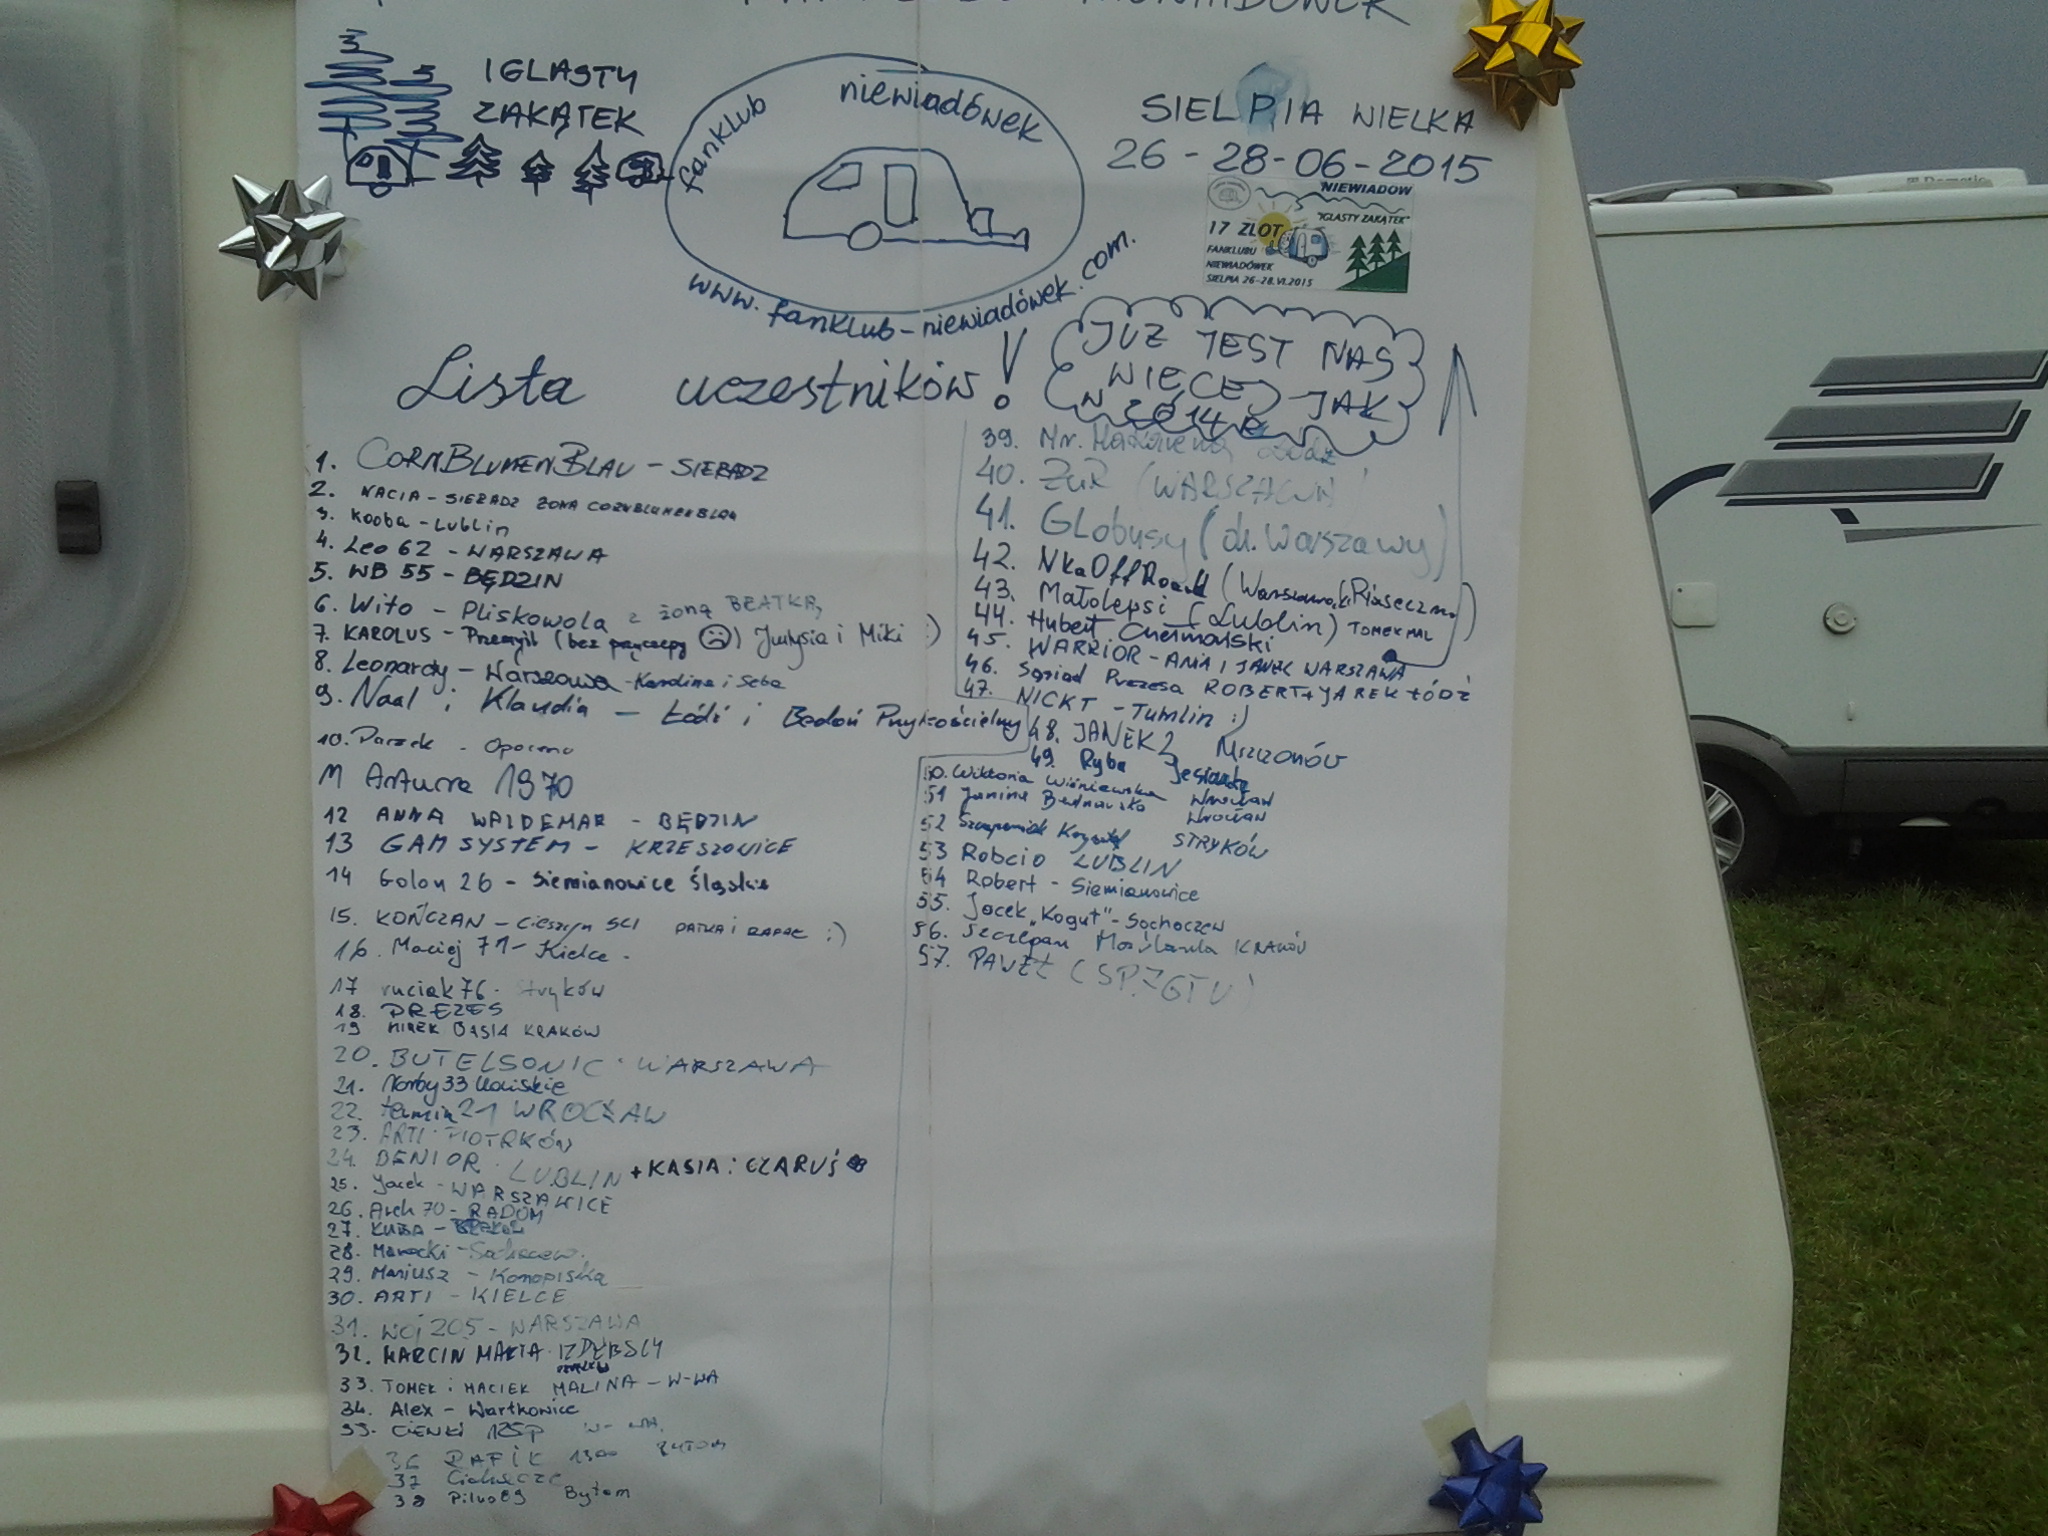 NIEWIADÓWEK
IGLASTY
ZAKĄTEK
fanklub niewiadówek
www.fanklub-niewiadówek.com.
SIELPIA WIELKA
26-28-06-2015
NIEWIADOW
"IGLASTY ZAKĄTEK"
17 ZLOT
FANKLUBU
NIEWIADÓWEK
SIELPIA 26-28.VI.2015
Lista uczestników!
JUZ JEST NAS
WIĘCEJ JAK
W 2014 R
1. CORNBLUMENBLAU - SIERADZ
2. NACIA - SIERADZ ŻONA CORNBLUMENBLAU
3. Kooba - Lublin
4. Leo 62 - WARSZAWA
5. WB 55 - BĘDZIN
6. Wito - Pliskowola z żoną BEATKĄ
7. KAROLUS - Przemyśl (bez przyczepy ) Justysia i Miki :)
8. Leonardy - Warszawa - Karolina i Seba
9. Naal i Klaudia - Łódź i Bedoń Przykościelny
10. Parzek - Opoczno
11 Arturro 1970
12 ANNA WALDEMAR - BĘDZIN
13 GAM SYSTEM - KRZESZOWICE
14 Golon 26 - Siemianowice Śląskie
15. KOŃCZAN - Cieszyn SCI PATKA i RAFAŁ :)
16. Maciej 71 - Kielce.
17 ruciak76. Stryków
18. PREZES
19 MIREK BASIA KRAKÓW
20. BUTELSONIC. WARSZAWA
21. Norby33 Końskie
22. termin21 WROCŁAW
23. ARTI. PIOTRKÓW
24. BENIOR. LUBLIN + KASIA i CZARUŚ
25. Jacek - WARSZAWICE
26. Arch 70 - RADOM
27. KUBA -
28. Marocki - Sochaczew.
29. Mariusz - Konopiska
30. ARTI - KIELCE
31. WOJ205 - WARSZAWA
32. MARCIN MARTA IZDEBSCY
33. TOMEK i MACIEK MALINA - W-WA
34. Alex - Wartkowice
35. CIENKI 125p W-WA
36 RAFIK 1300 BYTOM
37
38 Pilot89 Bytom
39. Mr. Łódź
40. ZUR (WARSZAWA)
41. GLobusy (ok. Warszawy)
42. NkaOffRoad (Warszawa k. Piaseczna)
43. Małolepsi (Lublin) TOMEKMAL
44. Hubert
45. WARRIOR - ANIA i JANEK WARSZAWA
46. Sąsiad Prezesa ROBERT + JAREK ŁÓDŹ
47. NICKT - Tumlin :)
48. JANEK2 Mszczonów
49. Ryba
50. Wiktoria Wiśniewska Wrocław
51 Janina Bednarska Wrocław
52 Szczepaniak Krzysztof STRYKÓW
53 Robcio LUBLIN
54 Robert - Siemianowice
55. Jacek „Kogut" - Sochaczew
56. Szczepan KRAKÓW
57. PAWEŁ (SPZGTU)